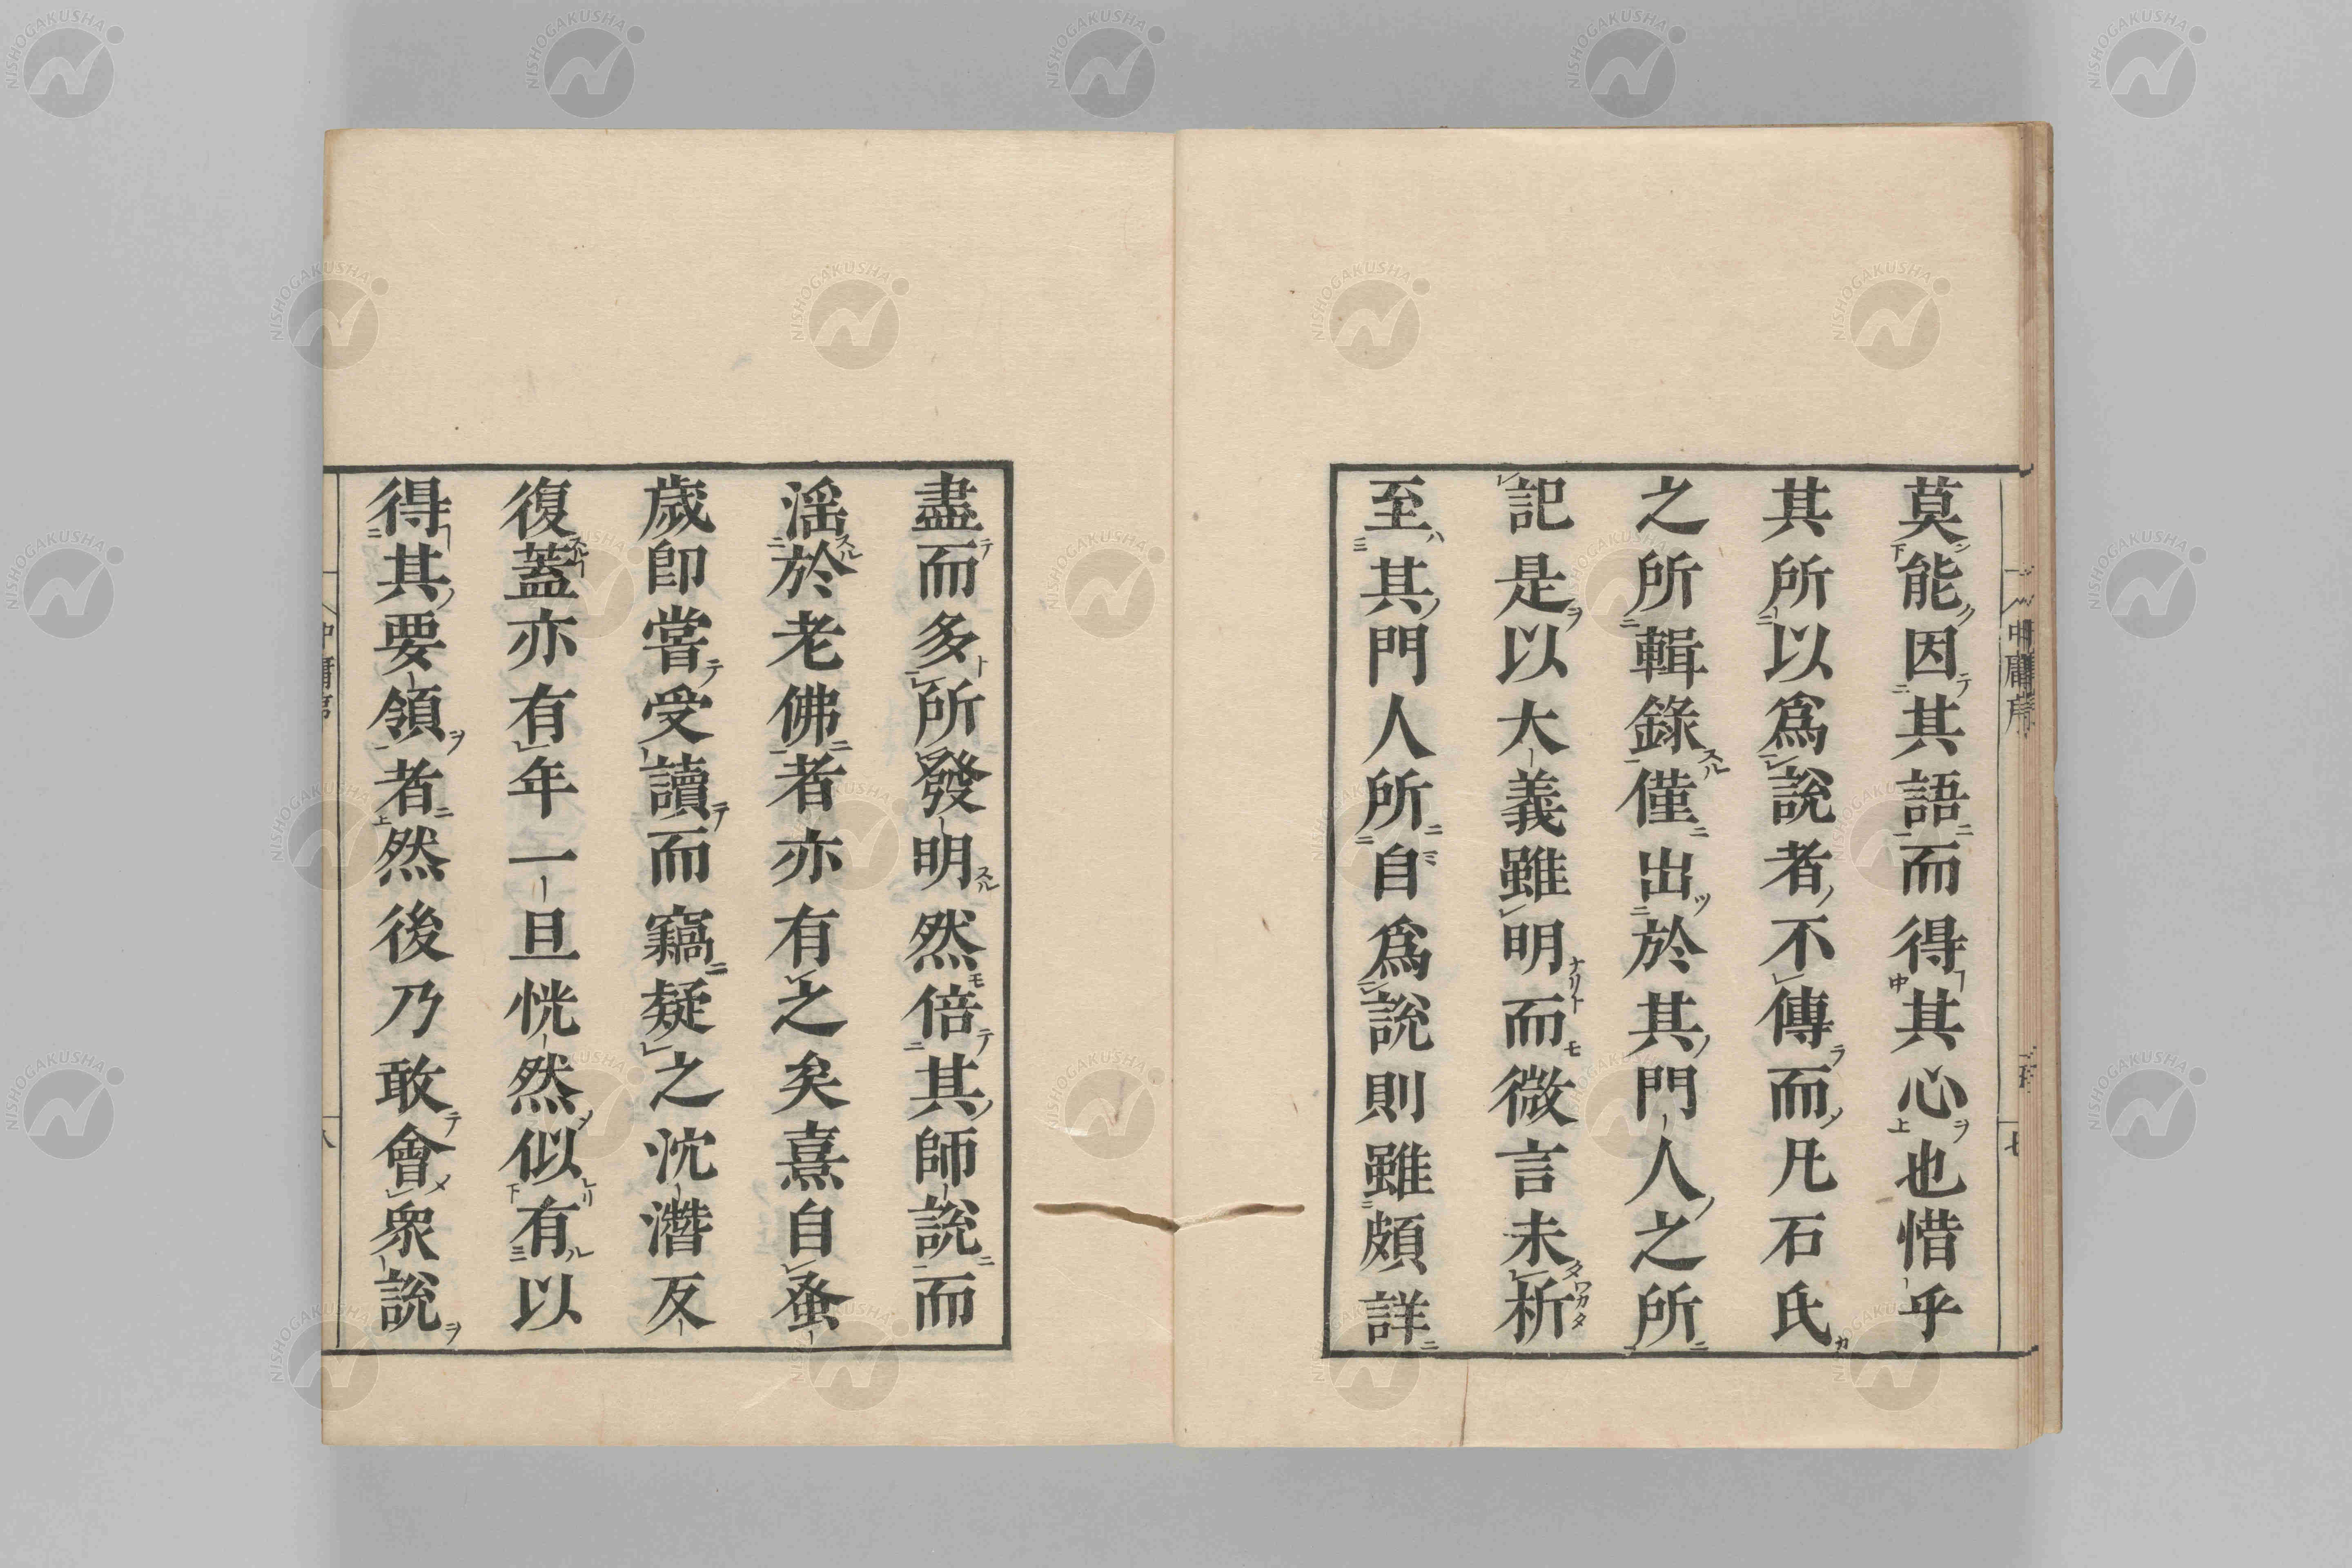 莫能因其語而得其心也惜乎
其所以爲說者不傳而凡石氏
之所輯錄僅出於其門人之所
記是以大義雖明而微言未析
至其門人所自爲說則雖頗詳
盡而多所發明然倍其師說而
淫於老佛者亦有之矣熹自蚤
歲卽嘗受讀而竊疑之沈潛反
復蓋亦有年一旦恍然似有以
得其要領者然後乃敢會衆說
NISHOGAKUSHA